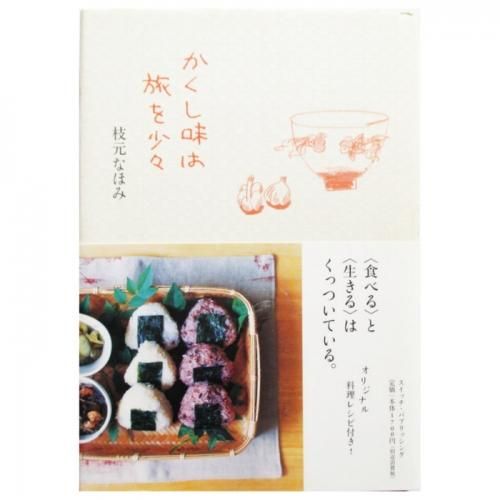 かくし味は
旅を少々
枝元なほみ
〈食べる〉と
〈生きる〉は
くっついている。
オリジナル
料理レシピ付き!
スイッチ・パブリッシング
定価:本体1700円(別途消費税)